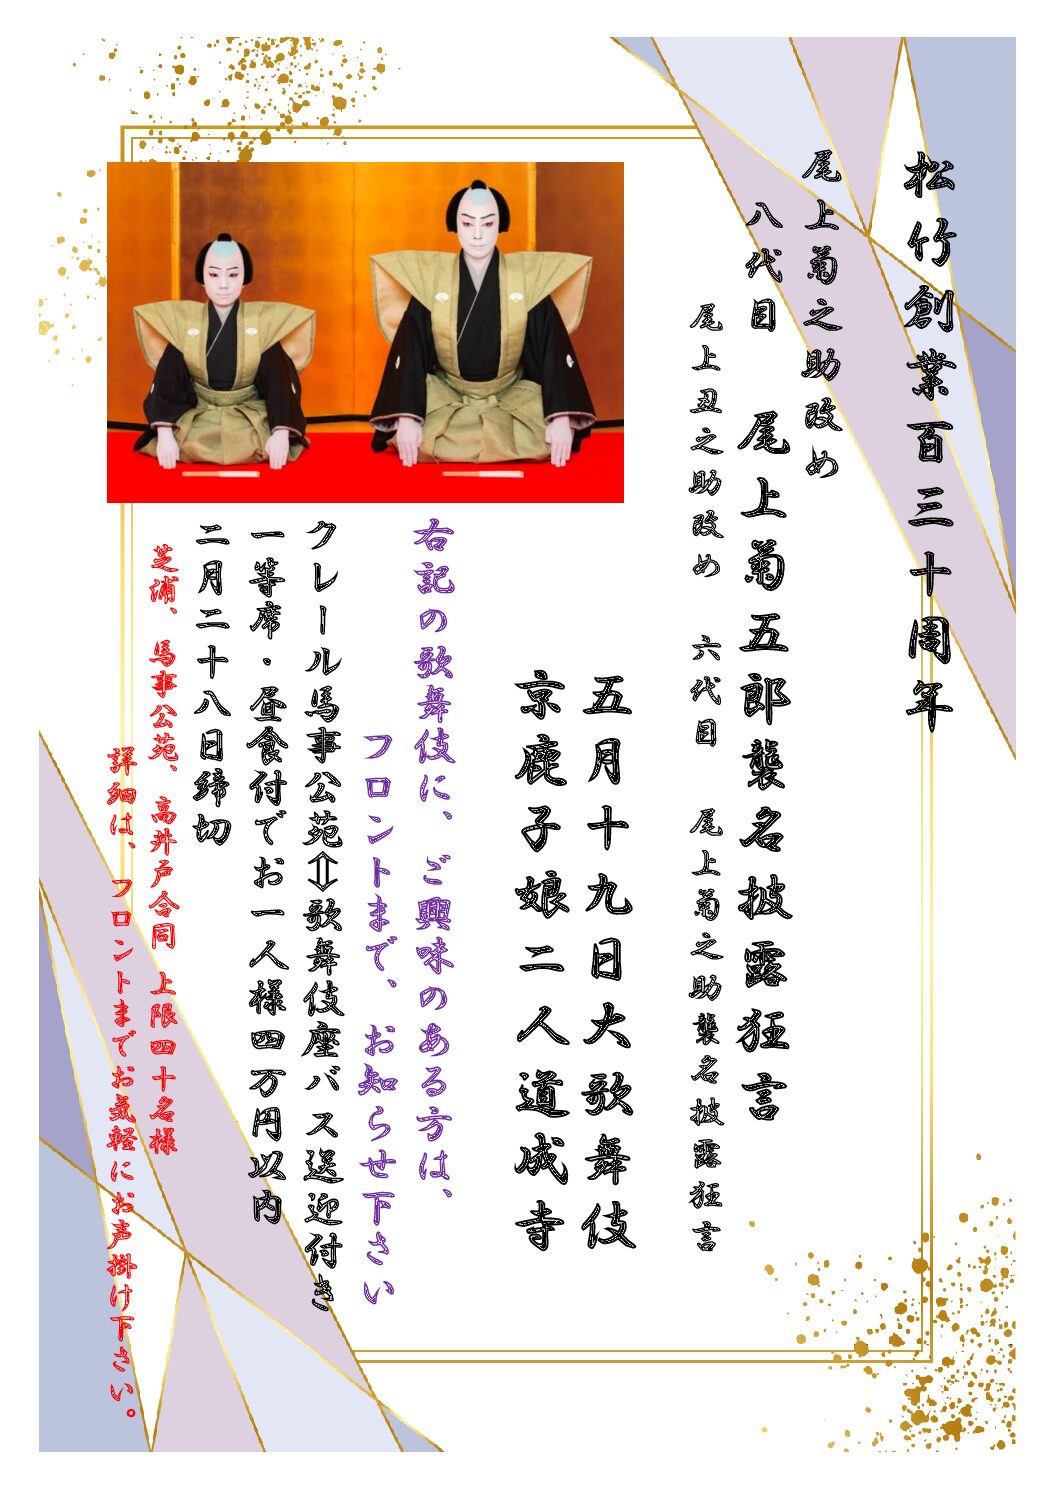 松竹創業百三十周年
尾上菊之助改め
八代目 尾上菊五郎襲名披露狂言
尾上丑之助改め 六代目 尾上菊之助襲名披露狂言
五月十九日大歌舞伎
京鹿子娘二人道成寺
右記の歌舞伎に、ご興味のある方は、
フロントまで、お知らせ下さい
クレール馬事公苑⇔歌舞伎座バス送迎付き
一等席・昼食付でお一人様四万円以内
二月二十八日締切
芝浦、馬事公苑、高井戸合同 上限四十名様
詳細は、フロントまでお気軽にお声掛け下さい。